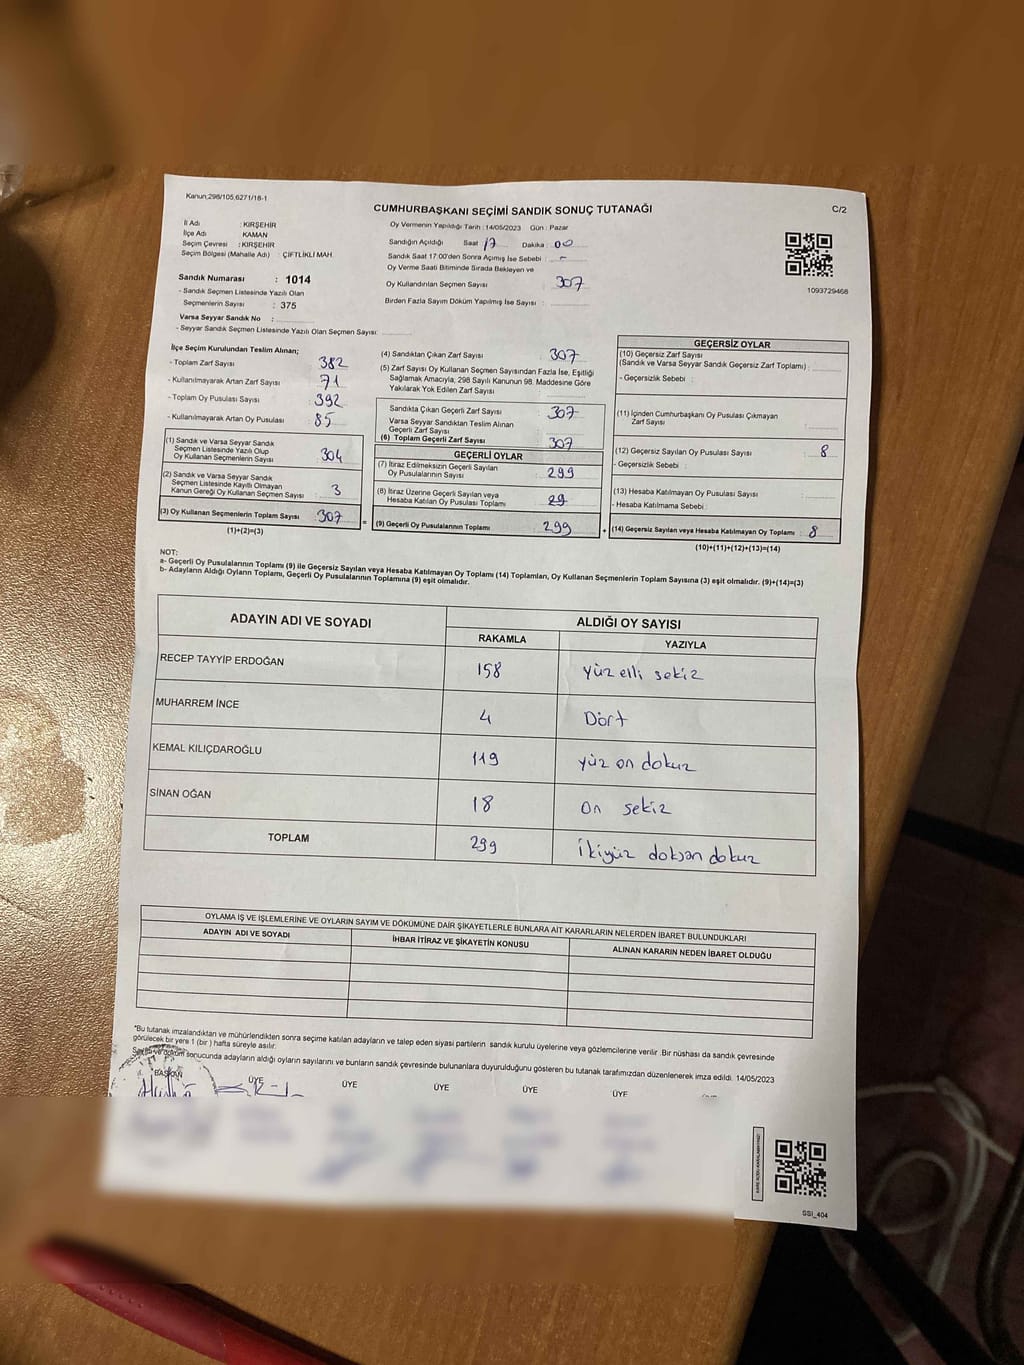 Kanun;298/105,6271/18-1
CUMHURBAŞKANI SEÇİMİ SANDIK SONUÇ TUTANAĞI
C/2
İl Adı : KIRŞEHİR
İlçe Adı : KAMAN
Seçim Çevresi : KIRŞEHİR
Seçim Bölgesi (Mahalle Adı) : ÇİFTLİKLİ MAH.
Sandık Numarası : 1014
- Sandık Seçmen Listesinde Yazılı Olan
Seçmenlerin Sayısı : 375
Varsa Seyyar Sandık No :
- Seyyar Sandık Seçmen Listesinde Yazılı Olan Seçmen Sayısı:
Oy Vermenin Yapıldığı Tarih : 14/05/2023 Gün : Pazar
Sandığın Açıldığı Saat 17 Dakika : 00
Sandık Saat 17:00'den Sonra Açımış İse Sebebi : -
Oy Verme Saati Bitiminde Sırada Bekleyen ve
Oy Kullandırılan Seçmen Sayısı : 307
Birden Fazla Sayım Döküm Yapılmış İse Sayısı :
1093729468
İlçe Seçim Kurulundan Teslim Alınan;
- Toplam Zarf Sayısı : 382
- Kullanılmayarak Artan Zarf Sayısı : 71
- Toplam Oy Pusulası Sayısı : 392
- Kullanılmayarak Artan Oy Pusulası : 85
(1) Sandık ve Varsa Seyyar Sandık
Seçmen Listesinde Yazılı Olup
Oy Kullanan Seçmenlerin Sayısı : 304
(2) Sandık ve Varsa Seyyar Sandık
Seçmen Listesinde Kayıtlı Olmayan
Kanun Gereği Oy Kullanan Seçmen Sayısı : 3
(3) Oy Kullanan Seçmenlerin Toplam Sayısı : 307
(1)+(2)=(3)
(4) Sandıktan Çıkan Zarf Sayısı : 307
(5) Zarf Sayısı Oy Kullanan Seçmen Sayısından Fazla İse, Eşitliği
Sağlamak Amacıyla, 298 Sayılı Kanunun 98. Maddesine Göre
Yakılarak Yok Edilen Zarf Sayısı :
Sandıkta Çıkan Geçerli Zarf Sayısı : 307
Varsa Seyyar Sandıktan Teslim Alınan
Geçerli Zarf Sayısı :
(6) Toplam Geçerli Zarf Sayısı : 307
GEÇERLİ OYLAR
(7) İtiraz Edilmeksizin Geçerli Sayılan
Oy Pusulalarının Sayısı : 299
(8) İtiraz Üzerine Geçerli Sayılan veya
Hesaba Katılan Oy Pusulası Toplamı : 29
(9) Geçerli Oy Pusulalarının Toplamı : 299
GEÇERSİZ OYLAR
(10) Geçersiz Zarf Sayısı
(Sandık ve Varsa Seyyar Sandık Geçersiz Zarf Toplamı) :
- Geçersizlik Sebebi :
(11) İçinden Cumhurbaşkanı Oy Pusulası Çıkmayan
Zarf Sayısı :
(12) Geçersiz Sayılan Oy Pusulası Sayısı : 8
- Geçersizlik Sebebi :
(13) Hesaba Katılmayan Oy Pusulası Sayısı :
- Hesaba Katılmama Sebebi :
(14) Geçersiz Sayılan veya Hesaba Katılmayan Oy Toplamı : 8
(10)+(11)+(12)+(13)=(14)
NOT:
a- Geçerli Oy Pusulalarının Toplamı (9) ile Geçersiz Sayılan veya Hesaba Katılmayan Oy Toplamı (14) Toplamları, Oy Kullanan Seçmenlerin Toplam Sayısına (3) eşit olmalıdır. (9)+(14)=(3)
b- Adayların Aldığı Oyların Toplamı, Geçerli Oy Pusulalarının Toplamına (9) eşit olmalıdır.
ADAYIN ADI VE SOYADI ALDIĞI OY SAYISI
RAKAMLA YAZIYLA
RECEP TAYYİP ERDOĞAN 158 yüz elli sekiz
MUHARREM İNCE 4 Dört
KEMAL KILIÇDAROĞLU 119 yüz on dokuz
SİNAN OĞAN 18 On sekiz
TOPLAM 299 İkiyüz doksan dokuz
OYLAMA İŞ VE İŞLEMLERİNE VE OYLARIN SAYIM VE DÖKÜMÜNE DAİR ŞİKAYETLERLE BUNLARA AİT KARARLARIN NELERDEN İBARET BULUNDUKLARI
ADAYIN ADI VE SOYADI İHBAR İTİRAZ VE ŞİKAYETİN KONUSU ALINAN KARARIN NEDEN İBARET OLDUĞU
*Bu tutanak imzalandıktan ve mühürlendikten sonra seçime katılan adayların ve talep eden siyasi partilerin sandık kurulu üyelerine veya gözlemcilerine verilir .Bir nüshası da sandık çevresinde
görülecek bir yere 1 (bir ) hafta süreyle asılır.
Sayım ve döküm sonucunda adayların aldığı oyların sayılarını ve bunların sandık çevresinde bulunanlara duyurulduğunu gösteren bu tutanak tarafımızdan düzenlenerek imza edildi. 14/05/2023
BAŞKAN ÜYE ÜYE ÜYE ÜYE ÜYE
SSI_404